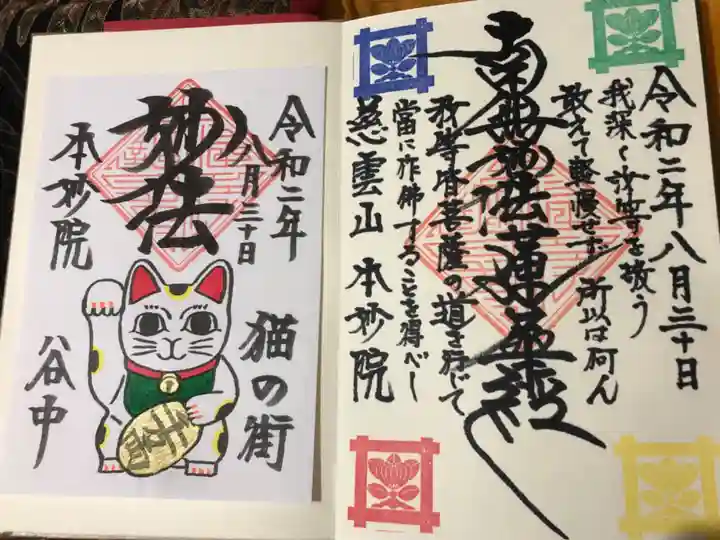 令和二年
八月三十日
妙法
本妙院
猫の街
谷中
令和二年八月三十日
我深く汝等を敬う
敢えて軽慢せず 所以は何ん
南無妙法蓮華経
汝等皆菩薩の道を行じて
當に作佛することを得べし
慈雲山 本妙院